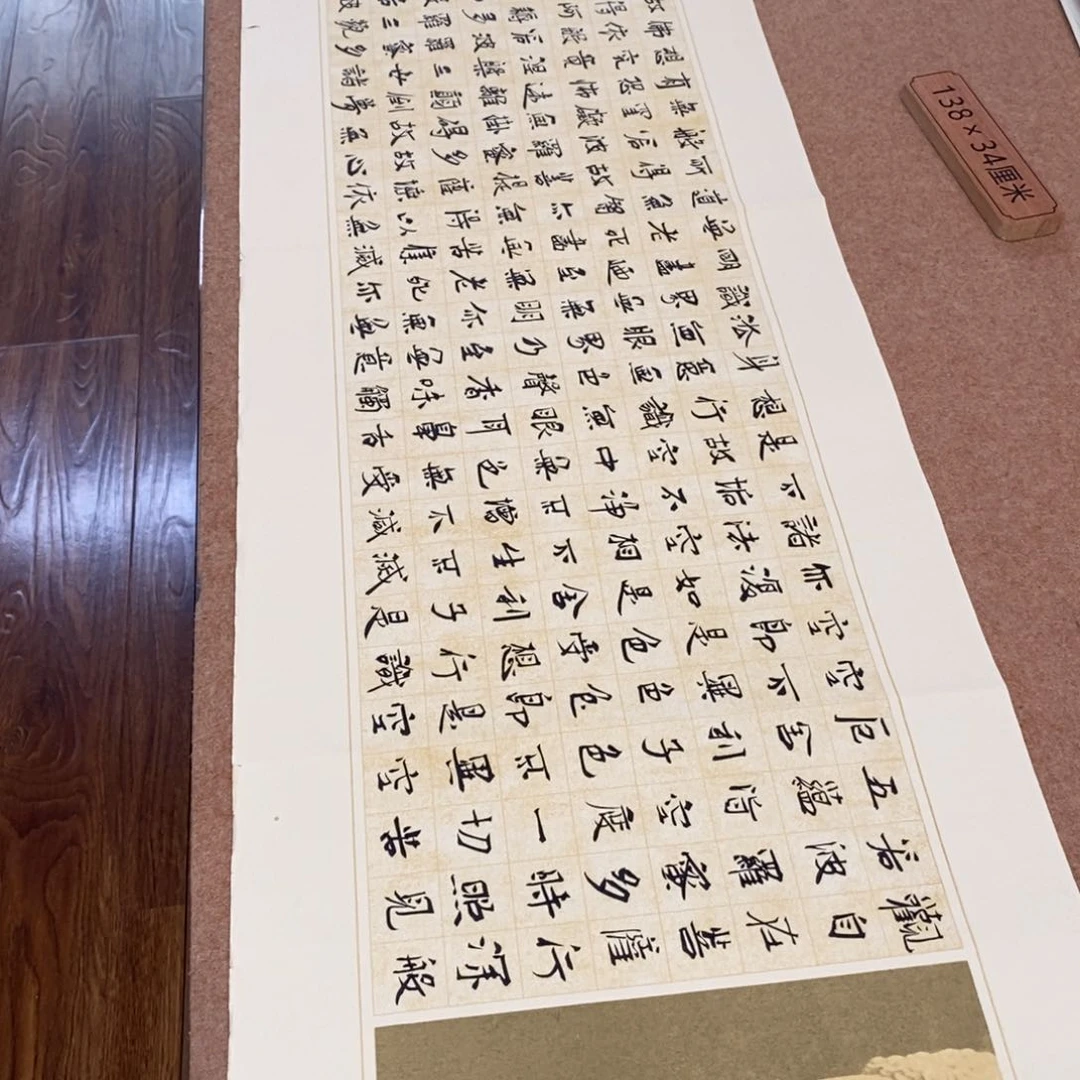 觀自在菩薩行深般
若波羅蜜多時照見
五蘊皆空度一切苦
厄舍利子色不異空
空不異色色即是空
空即是色受想行識
亦復如是舍利子是
諸法空相不生不滅
不垢不淨不增不減
是故空中無色無受
想行識無眼耳鼻舌
身意無色聲香味觸
法無眼界乃至無意
識界無無明亦無無
明盡迺至無老死亦
無老死盡無苦集滅
道無智亦無得以無
所得故菩提薩埵依
般若波羅蜜多故心
無罣礙無罣礙故無
有恐怖遠離顛倒夢
想究竟涅槃三世諸
佛依般若波羅蜜多
故得阿耨多羅三藐
138×34厘米